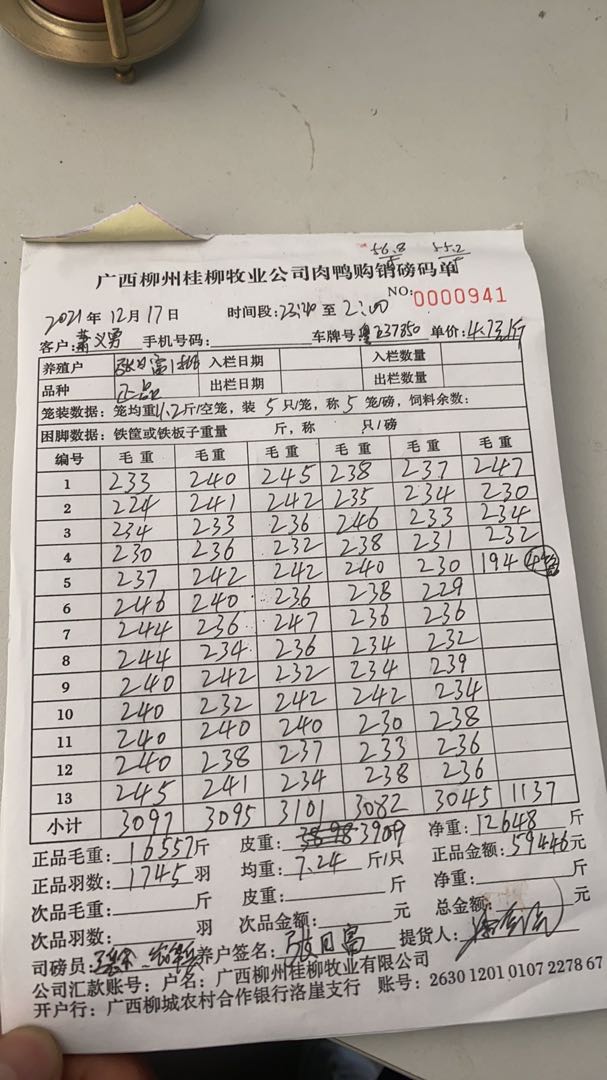 56.8 55.2
广西柳州桂柳牧业公司肉鸭购销磅码单
NO: 0000941
2021年12月17日 时间段:23:40至2:00
客户: 萧义勇 手机号码: 车牌号 粤 Z37850 单价: 4.7元/斤
养殖户 张日富 入栏日期 入栏数量
品种 正品 出栏日期 出栏数量
笼装数据: 笼均重11.2斤/空笼，装5只/笼，称5笼/磅，饲料余数:
困脚数据: 铁筐或铁板子重量 斤，称 只/磅
编号 毛重 毛重 毛重 毛重 毛重 毛重
1 233 240 245 238 237 247
2 224 241 242 235 234 230
3 234 233 236 246 233 234
4 230 236 232 238 231 232
5 237 242 242 240 230 194
6 246 240 236 238 229
7 244 236 247 236 236
8 244 234 236 234 232
9 240 242 232 234 239
10 240 232 242 242 234
11 240 240 240 230 238
12 240 238 237 233 236
13 245 241 234 238 236
小计 3097 3095 3101 3082 3045 1137
正品毛重: 16557斤 皮重: 3909 净重: 12648斤
正品羽数: 1745羽 均重: 7.24斤/只 正品金额: 59446元
次品毛重: 斤 皮重: 斤 净重: 斤
次品羽数: 羽 次品金额: 元 总金额: 元
司磅员: 养户签名: 张日富 提货人:
公司汇款账号: 户名: 广西柳州桂柳牧业有限公司
开户行: 广西柳城农村合作银行洛崖支行 账号: 2630 1201 0107 2278 67